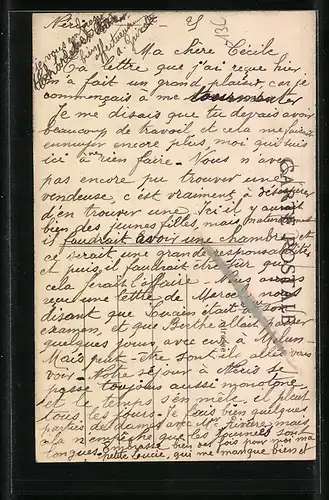 Ma Chère Cécile
Ta lettre que j'ai reçue hier
a fait un grand plaisir, car je
commençais à me tourmenter
Je me disais que tu devais avoir
beaucoup de travail et cela me faisait
ennuyer encore plus, moi qui suis
ici à ne rien faire – Vous n'avez
pas encore pu trouver une
vendeuse, c'est vraiment à désespérer
d'en trouver une Ici il y aurait
bien des jeunes filles, mais naturellement
il faudrait avoir une chambre et
ce serait une grande responsabilité
et puis il faudrait être sûr que
cela ferait l'affaire – Nous avons
reçu une lettre de nous
disant que était
examen, et que Berthe allait passer
quelques jours, avec eux à Melun –
Mais peut-être sont-ils allés vous
voir – Notre séjour à Néris se
passe toujours aussi monotone
et le temps s'en mêle, et pleut
tous les jours – Je fais bien quelques
parties de dames avec Mme Rivière mais
cela n'empêche que les journées sont
longues – Embrasse bien des fois pour moi ma
petite Loucie, qui me manque bien et
CARTE POSTALE